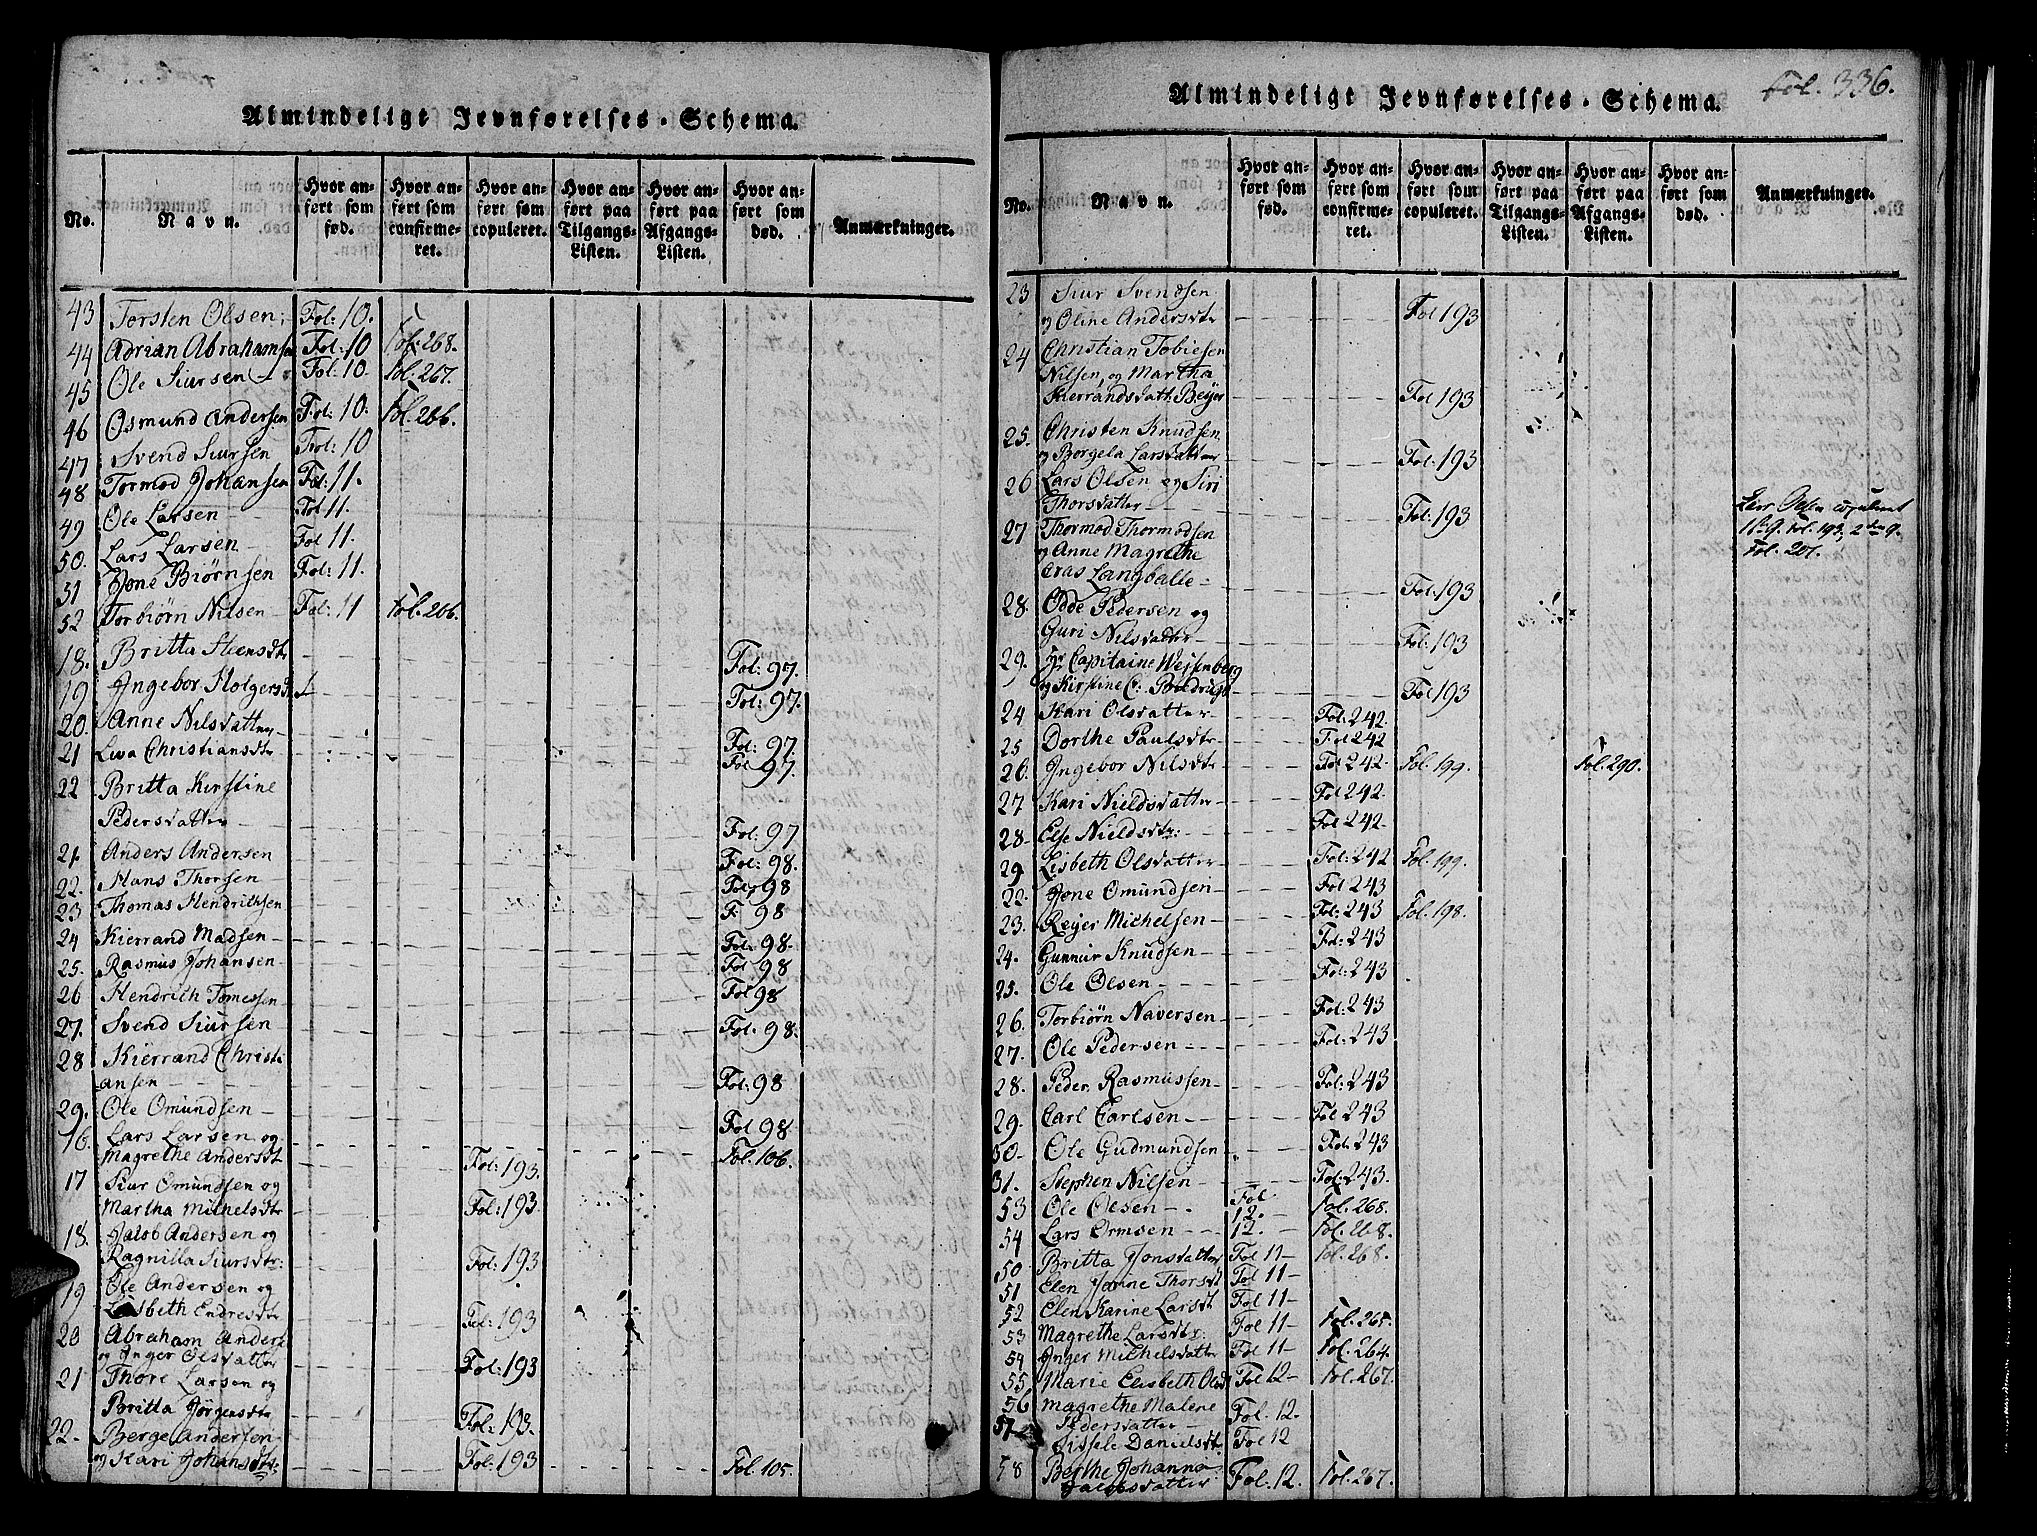 Almindeligt Jevnførelses-Schema.
No. Navn. Hvor anført som fød. Hvor anført som confirmeret. Hvor anført som copuleret. Hvor anført paa Tilgangs-Listen. Hvor anført paa Afgangs-Listen. Hvor anført som død. Anmærkninger.
43 Torsten Olsen, Fol: 10.
44 Adrian Abrahamsen Fol: 10 Fol: 268.
45 Ole Siursen Fol: 10. Fol. 267.
46 Osmund Andersen Fol: 10. Fol. 266.
47 Svend Siursen Fol: 10
48 Tormod Johansen Fol: 11.
49 Ole Larsen Fol 11.
50. Lars Larsen Fol 11.
51 Jone Biørnsen Fol: 11.
52 Torbiørn Nilsen Fol: 11 Fol. 266.
18. Britta Steensdtr Fol: 97.
19 Ingebor Holgersdt Fol: 97.
20. Anne Nilsdatter Fol: 97.
21 Lisa Christiansdtr Fol 97.
22 Britta Kirstine
Pedersdatter Fol: 97
21. Anders Andersen Fol: 98.
22. Mans Thorsen Fol, 98
23 Thomas Hendrichsen F: 98
24 Kierrand Madsen Fol: 98.
25. Rasmus Johansen Fol 98
26 Hendrich Tomessen Fol 98
27. Svend Siursen Fol. 98.
28 Kierrand Christi
ansen Fol: 98
29. Ole Omundsen Fol 98
16. Lars Larsen og
Magrethe Andersdt Fol: 193. Fol. 106.
17 Siur Omundsen og
Martha Michelsdtr Fol: 193
18. Jacob Andersen og
Ragnilla Siursdtr: Fol: 193
19 Ole Andersen og
Lisbeth Endresdtr Fol: 193
20 Abraham Anders
og Inger Olsdatter Fol: 193
21 Thore Larsen og
Britta Jørgensdtr Fol: 193.
22. Berge Andersen
og Kari Johansdtr. Fol: 193 Fol. 105.
Almindeligt Jevnførelses-Schema. Fol. 336.
No. Navn. Hvor anført som fød. Hvor anført som confirmeret. Hvor anført som copuleret. Hvor anført paa Tilgangs-Listen. Hvor anført paa Afgangs-Listen. Hvor anført som død. Anmærkninger.
23 Siur Svendsen
og Oline Andersdtr Fol 193
24 Christian Tobiesen
Nilsen, og Martha
Kierrandsdatt. Beyer Fol 193
25. Christen Knudsen
og Borgela Larsdatter Fol. 193
26 Lars Olsen og Siri
Thorsdatter Fol: 193 Lars Olsen copuleret
1ste g. Fol. 193, 2den g.
Fol. 201.
27 Thormod Thormodsen
og Anne Magrethe
Langballe Fol: 193
28. Odde Pedersen og
Guri Nilsdatter Fol: 193
29. Hr Capitaine Westenberg
og Kirstine C: Fol 193
24 Kari Olsdatter Fol: 242.
25 Dorthe Paulsdtr Fol 242
26. Ingebor Nilsdtr Fol 242. Fol. 199. Fol. 290.
27 Kari Nieldsdatter Fol 242.
28. Else Nieldsdtr: Fol 242.
29 Lisbeth Olsdatter Fol: 242 Fol. 199.
22. Jone Omundsen Fol 243
23. Reyer Michelsen Fol: 243 Fol. 198.
24. Gunnur Knudsen Fol: 243
25. Ole Olsen Fol: 243
26. Torbiørn Naversen Fol: 243
27. Ole Pedersen Fol: 243
28. Peder Rasmussen Fol: 243
29. Carl Carlsen Fol 243
30 Ole Gudmundsen Fol: 243
31. Stephen Nilsen Fol: 243.
53 Ole Olsen Fol 12. Fol. 268.
54 Lars Ormsen 12. Fol. 268.
50 Britta Jonsdatter Fol 11 Fol. 268.
51 Elen Janne Thorsdt Fol 11
52 Elen Karine Larsdt Fol 11
53 Magrethe Larsdtr: Fol 11 Fol. 265.
54 Inger Michelsdatter Fol 11 Fol. 264.
55 Marie Elisbeth Olsd Fol 12 Fol. 267.
56 Magrethe Malene
Pedersdatter Fol. 12.
57 Sissele Danielsdt Fol 12
58 Berthe Johanna
Jacobsdatter Fol: 12. Fol. 267.